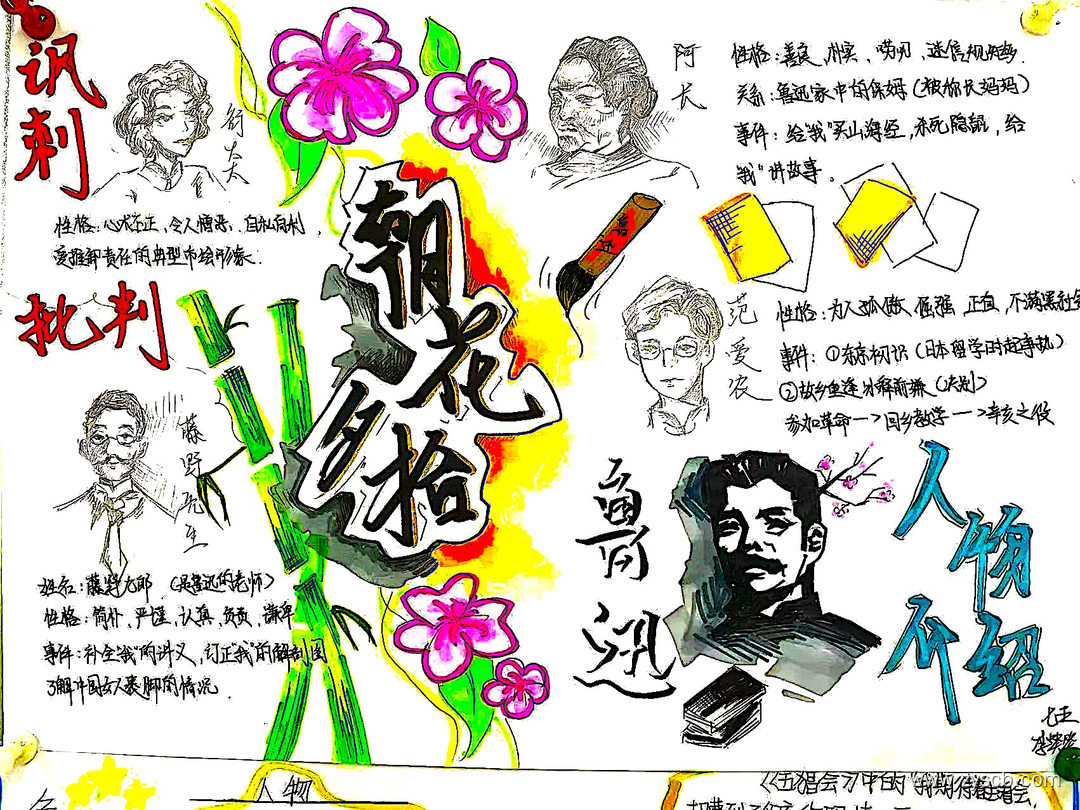 讽刺
衍太太
性格:心术不正、令人憎恶、自私自利,
爱推卸责任的典型市绘形象.
批判
藤野先生
姓名:藤野九郎 (是鲁迅的老师)
性格:简朴、严谨、认真、负责、谦卑
事件:补全"我"的讲义,订正"我"的解剖图
了解中国女人裹脚的情况.
朝花夕拾
鲁迅
阿长
性格:善良、朴实、唠叨、迷信规矩多.
关系:鲁迅家中的保姆(被称长妈妈)
事件:给"我"买山海经,杀死隐鼠,给
"我"讲故事.
范爱农
性格:为人孤傲、倔强、正直、不满黑暗社会
事件:①东京初识(日本留学时起争执)
②故乡重逢冰释前嫌(法别)
参加革命→回乡教学→辛亥之役
鲁迅
人物介绍
七五
人物
《五猖会》中的"我"期待看五猖会,